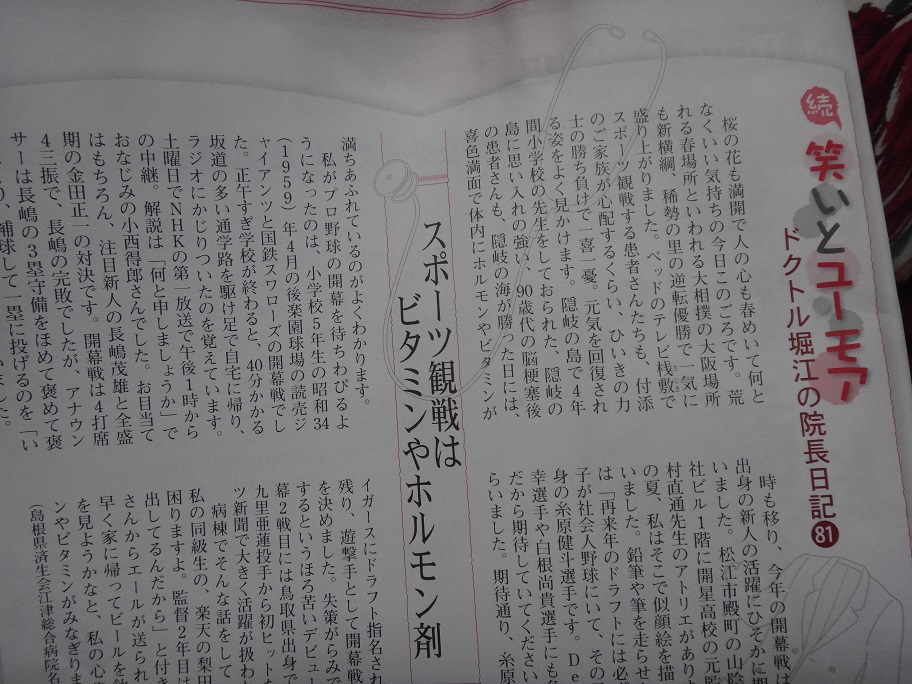 続
笑いとユーモア
ドクトル堀江の院長日記81
桜の花も満開で人の心も春めいて何と
なくいい気持ちの今日このごろです。荒
れる春場所といわれる大相撲の大阪場所
も新横綱、稀勢の里の逆転優勝で一気に
盛り上がりました。ベッドのテレビ桟敷で
スポーツ観戦する患者さんたちも、付添
のご家族が心配するくらい、ひいきの力
士の勝ち負けで一喜一憂。元気を回復され
る姿をよく見かけます。隠岐の島で4年
間小学校の先生をしておられた、隠岐の
島に思い入れの強い、90歳代の脳梗塞後
の患者さんも、隠岐の海が勝った日には、
喜色満面で体内にホルモンやビタミンが
スポーツ観戦は
ビタミンやホルモン剤
満ちあふれているのがよくわかります。
私がプロ野球の開幕を待ちわびるよ
うになったのは、小学校5年生の昭和34
(1959)年4月の後楽園球場の読売ジ
ャイアンツと国鉄スワローズの開幕戦でし
た。正午すぎ学校が終わると、40分かかる
坂道の多い通学路を駆け足で自宅に帰り、
ラジオにかじりついたのを覚えています。
土曜日でNHKの第一放送で午後1時から
の中継。解説は「何と申しましょうか」で
おなじみの小西得郎さんでした。お目当て
はもちろん、注目新人の長嶋茂雄と全盛
期の金田正一の対決です。開幕戦は4打席
4三振で、長嶋の完敗でしたが、アナウン
サーは長嶋の3塁守備をほめて褒めて褒
捕球して一塁に投げるのを「い
時も移り、今年の開幕戦は
出身の新人の活躍にひそかに期
いました。松江市殿町の山陰
社ビル1階に開星高校の元監
村直通先生のアトリエがあり
の夏、私はそこで似顔絵を描
いました。鉛筆や筆を走らせ
は「再来年のドラフトには必
子が社会人野球にいて、その
身の糸原健斗選手です。De
幸選手や白根尚貴選手にも
だから期待していてください
らいました。期待通り、糸原
イガースにドラフト指名され
残り、遊撃手として開幕戦
を決めました。失策がらみで
するというほろ苦いデビュー
幕2戦目には鳥取県出身で
九里亜蓮投手から初ヒットを
ツ新聞で大きく活躍が扱われ
病棟でそんな話をして
私の同級生の、楽天の梨田
困りますよ。監督2年目は
出してるんだから」と付き
さんからエールが送られ
早く家に帰ってビールを飲
を見ようかなと、私の心
ンやビタミンがみなぎりま
(島根県済生会江津総合病院名